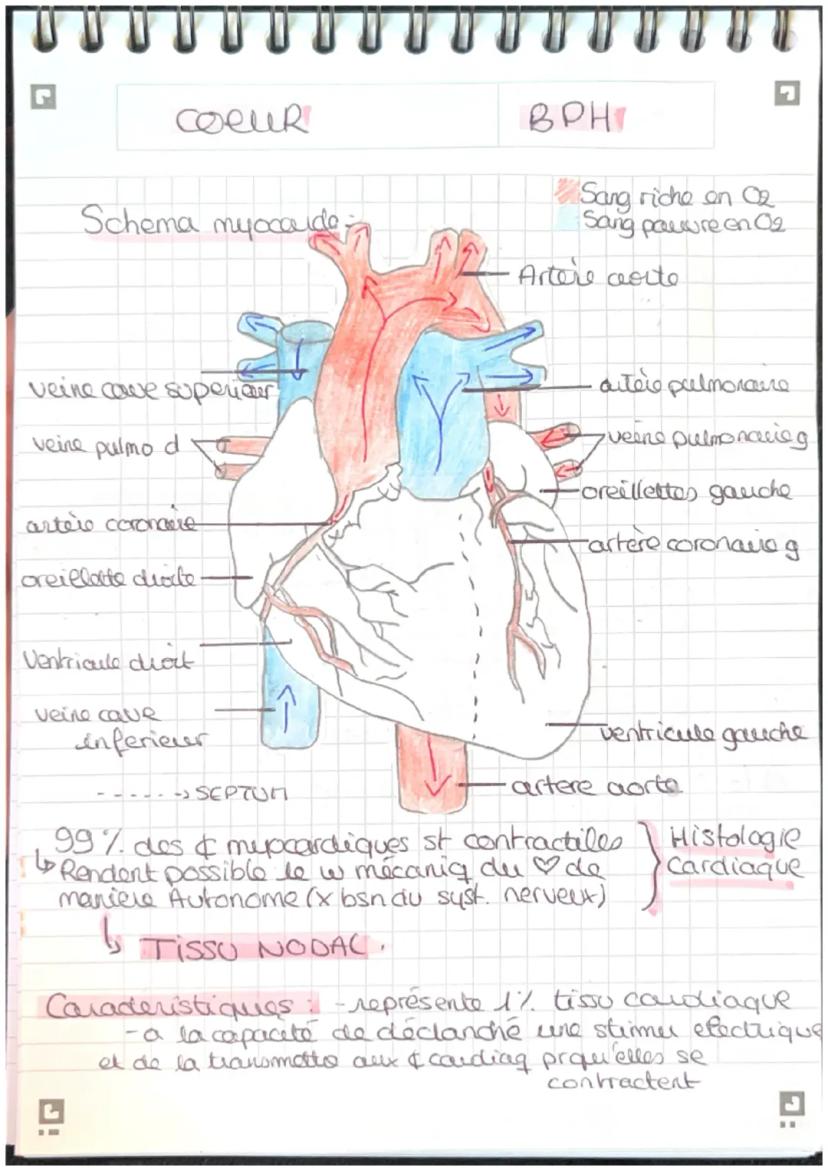 COEUR
BPH
Sang riche en O2
Sang pauvre en O2
Schema myocarde :
Artère aorte
veine cave superieur
artère pulmonaire
veine pulmo d
veine pulmonaire g
oreillettes gauche
artère coronaire
artère coronaire g
oreillette droite
Ventricule droit
veine cave
inferieur
ventricule gauche
artere aorte
------> SEPTUM
99% des ¢ myocardiques st contractiles
Histologie
↳ Rendent possible le w mécaniq du ♡ de
Cardiaque
manière Autonome (x bsn du syst. nerveux)
↳ TISSU NODAL.
Caracteristiques : - représente 1% tissu cardiaque
- a la capacité de déclanché une stimu electrique
et de la transmetto aux ¢ cardiaq prqu'elles se
contractent